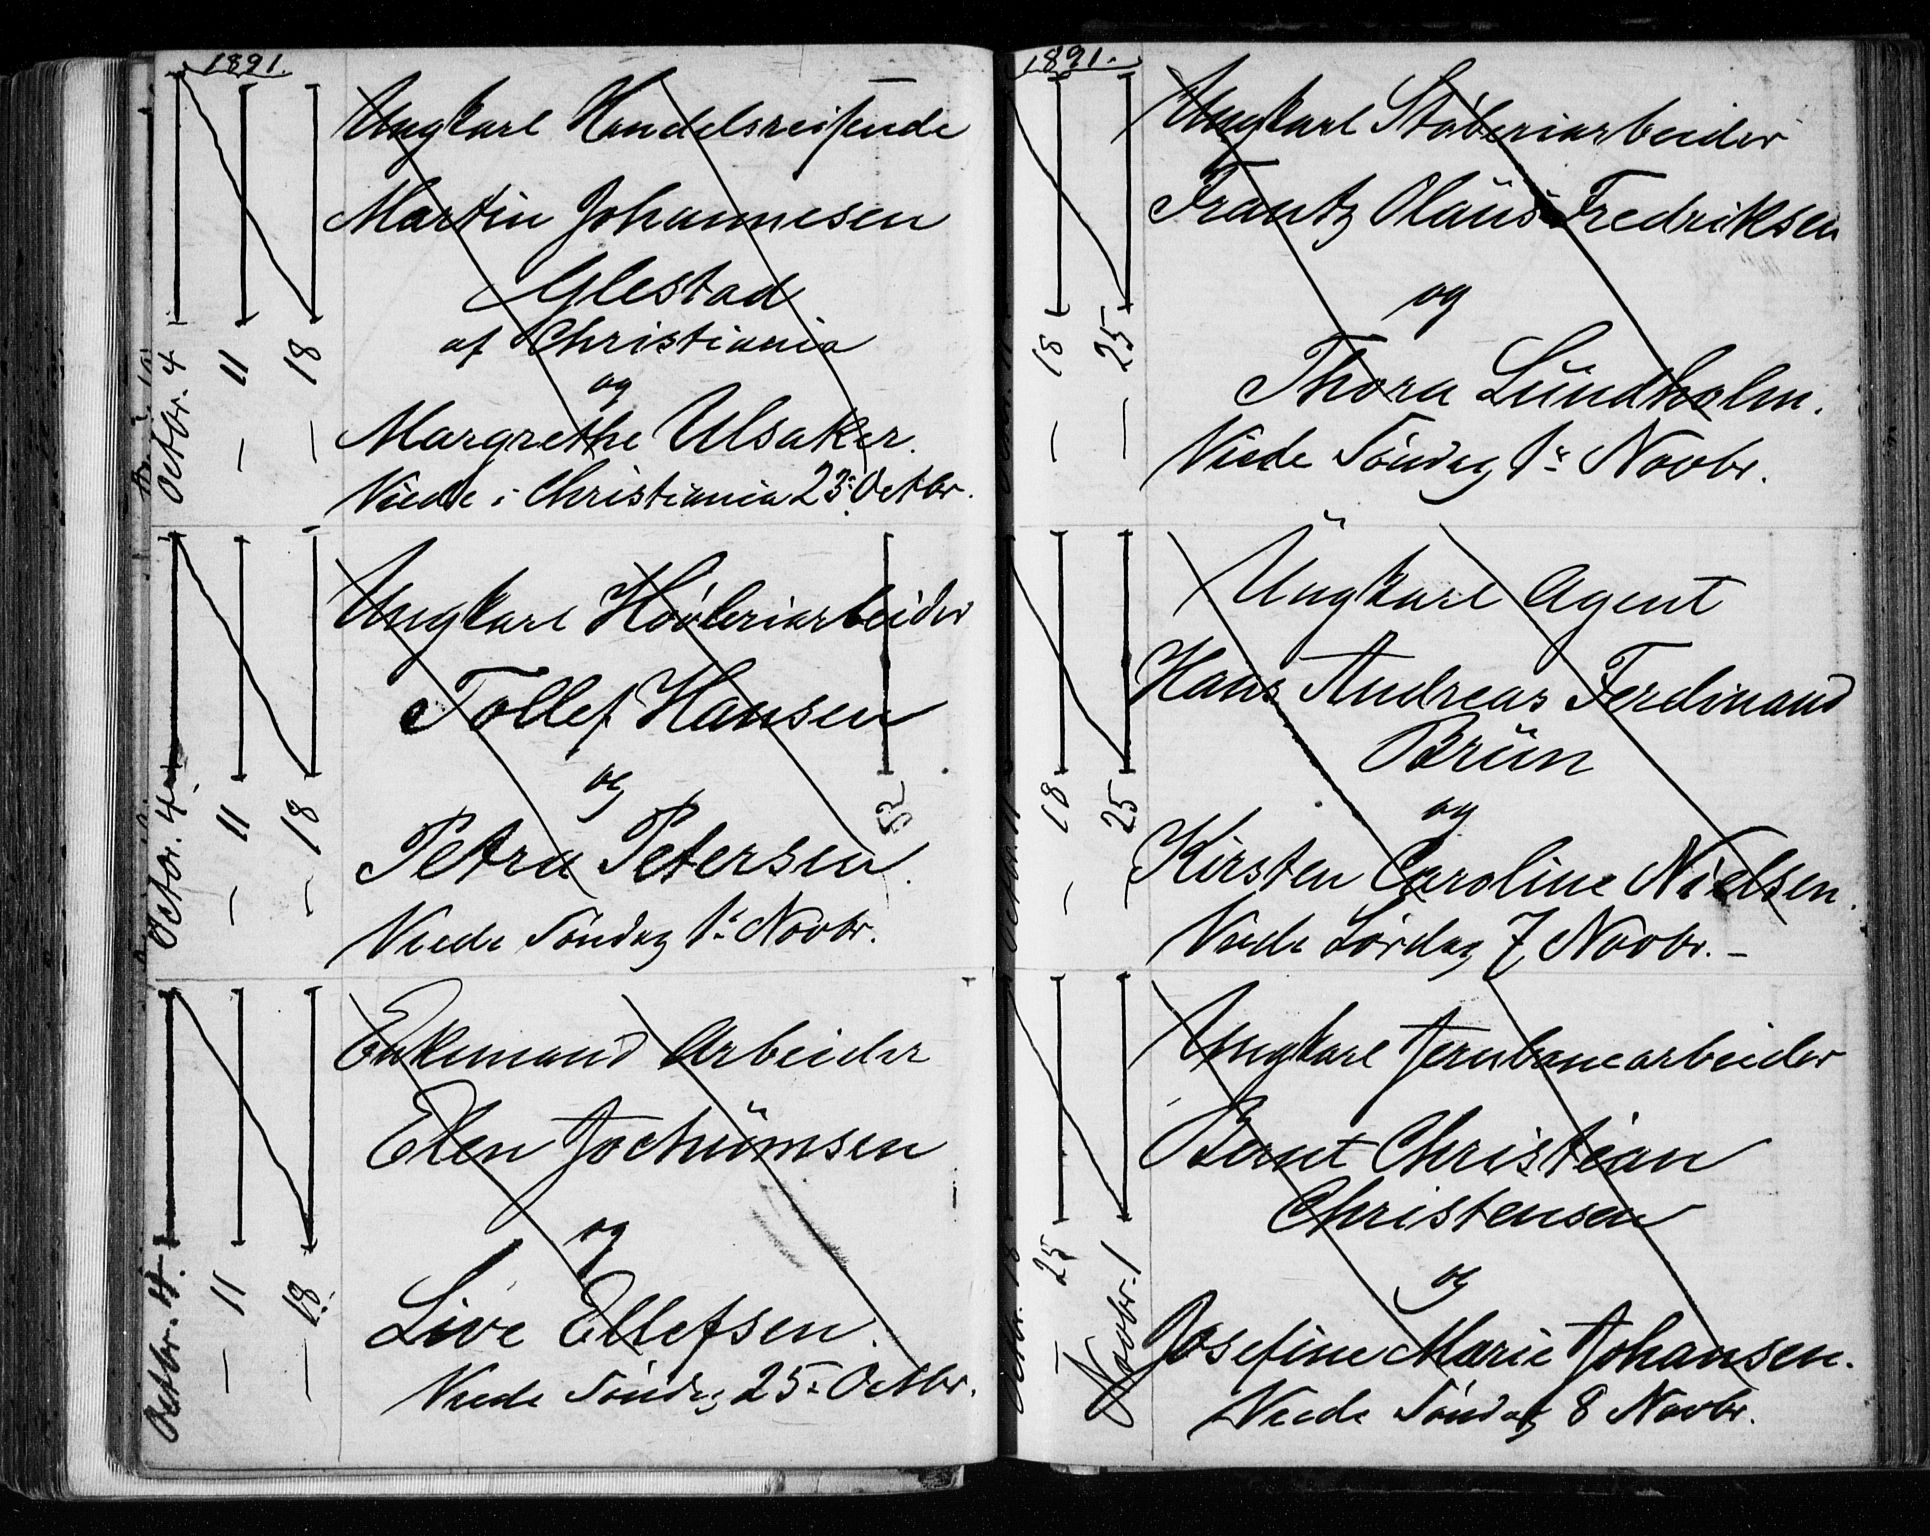 1891.
Octbr. 4
— 11
— 18
Ungkarl Handelsreisende
Martin Johannesen
Glestad
af Christiania
og
Margrethe Ulsaker.
Viede i Christiania 23: Octbr.
Octbr. 4
— 11
— 18
Ungkarl Høvleriarbeider
Tollef Hansen
og
52
Petra Petersen.
Viede Søndag 1: Novbr.
Octbr. 4.
— 11
— 18
Enkemand Arbeider
Elen Jochumsen
og
Live Ellefsen.
Viede Søndag 25: Octbr.
1891.
— 18
— 25
Ungkarl Støberiarbeider
Frantz Olaus Fredriksen
og
Thora Lundholm.
Viede Søndag 1: Novbr.
Octbr. 11
— 18
— 25
Ungkarl Agent
Hans Andreas Ferdinand
Brun
og
Kirsten Caroline Nielsen.
Viede Lørdag 7 Novbr. —
Octbr. 18
— 25
Novbr. 1
Ungkarl Jernbanearbeider
Bernt Christian
Christensen
og
Josefine Marie Johansen.
Viede Søndag 8 Novbr.